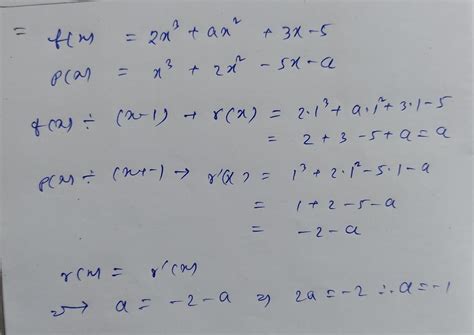 =
f(x) = 2x³ + ax² + 3x - 5
p(x) = x³ + 2x² - 5x - a
f(x) ÷ (x-1) → r(x) = 2·1³ + a·1² + 3·1 - 5
= 2 + 3 - 5 + a = a
p(x) ÷ (x-1) → r'(x) = 1³ + 2·1² - 5·1 - a
= 1 + 2 - 5 - a
= -2 - a
r(x) = r'(x)
→ a = -2 - a ⇒ 2a = -2 ∴ a = -1